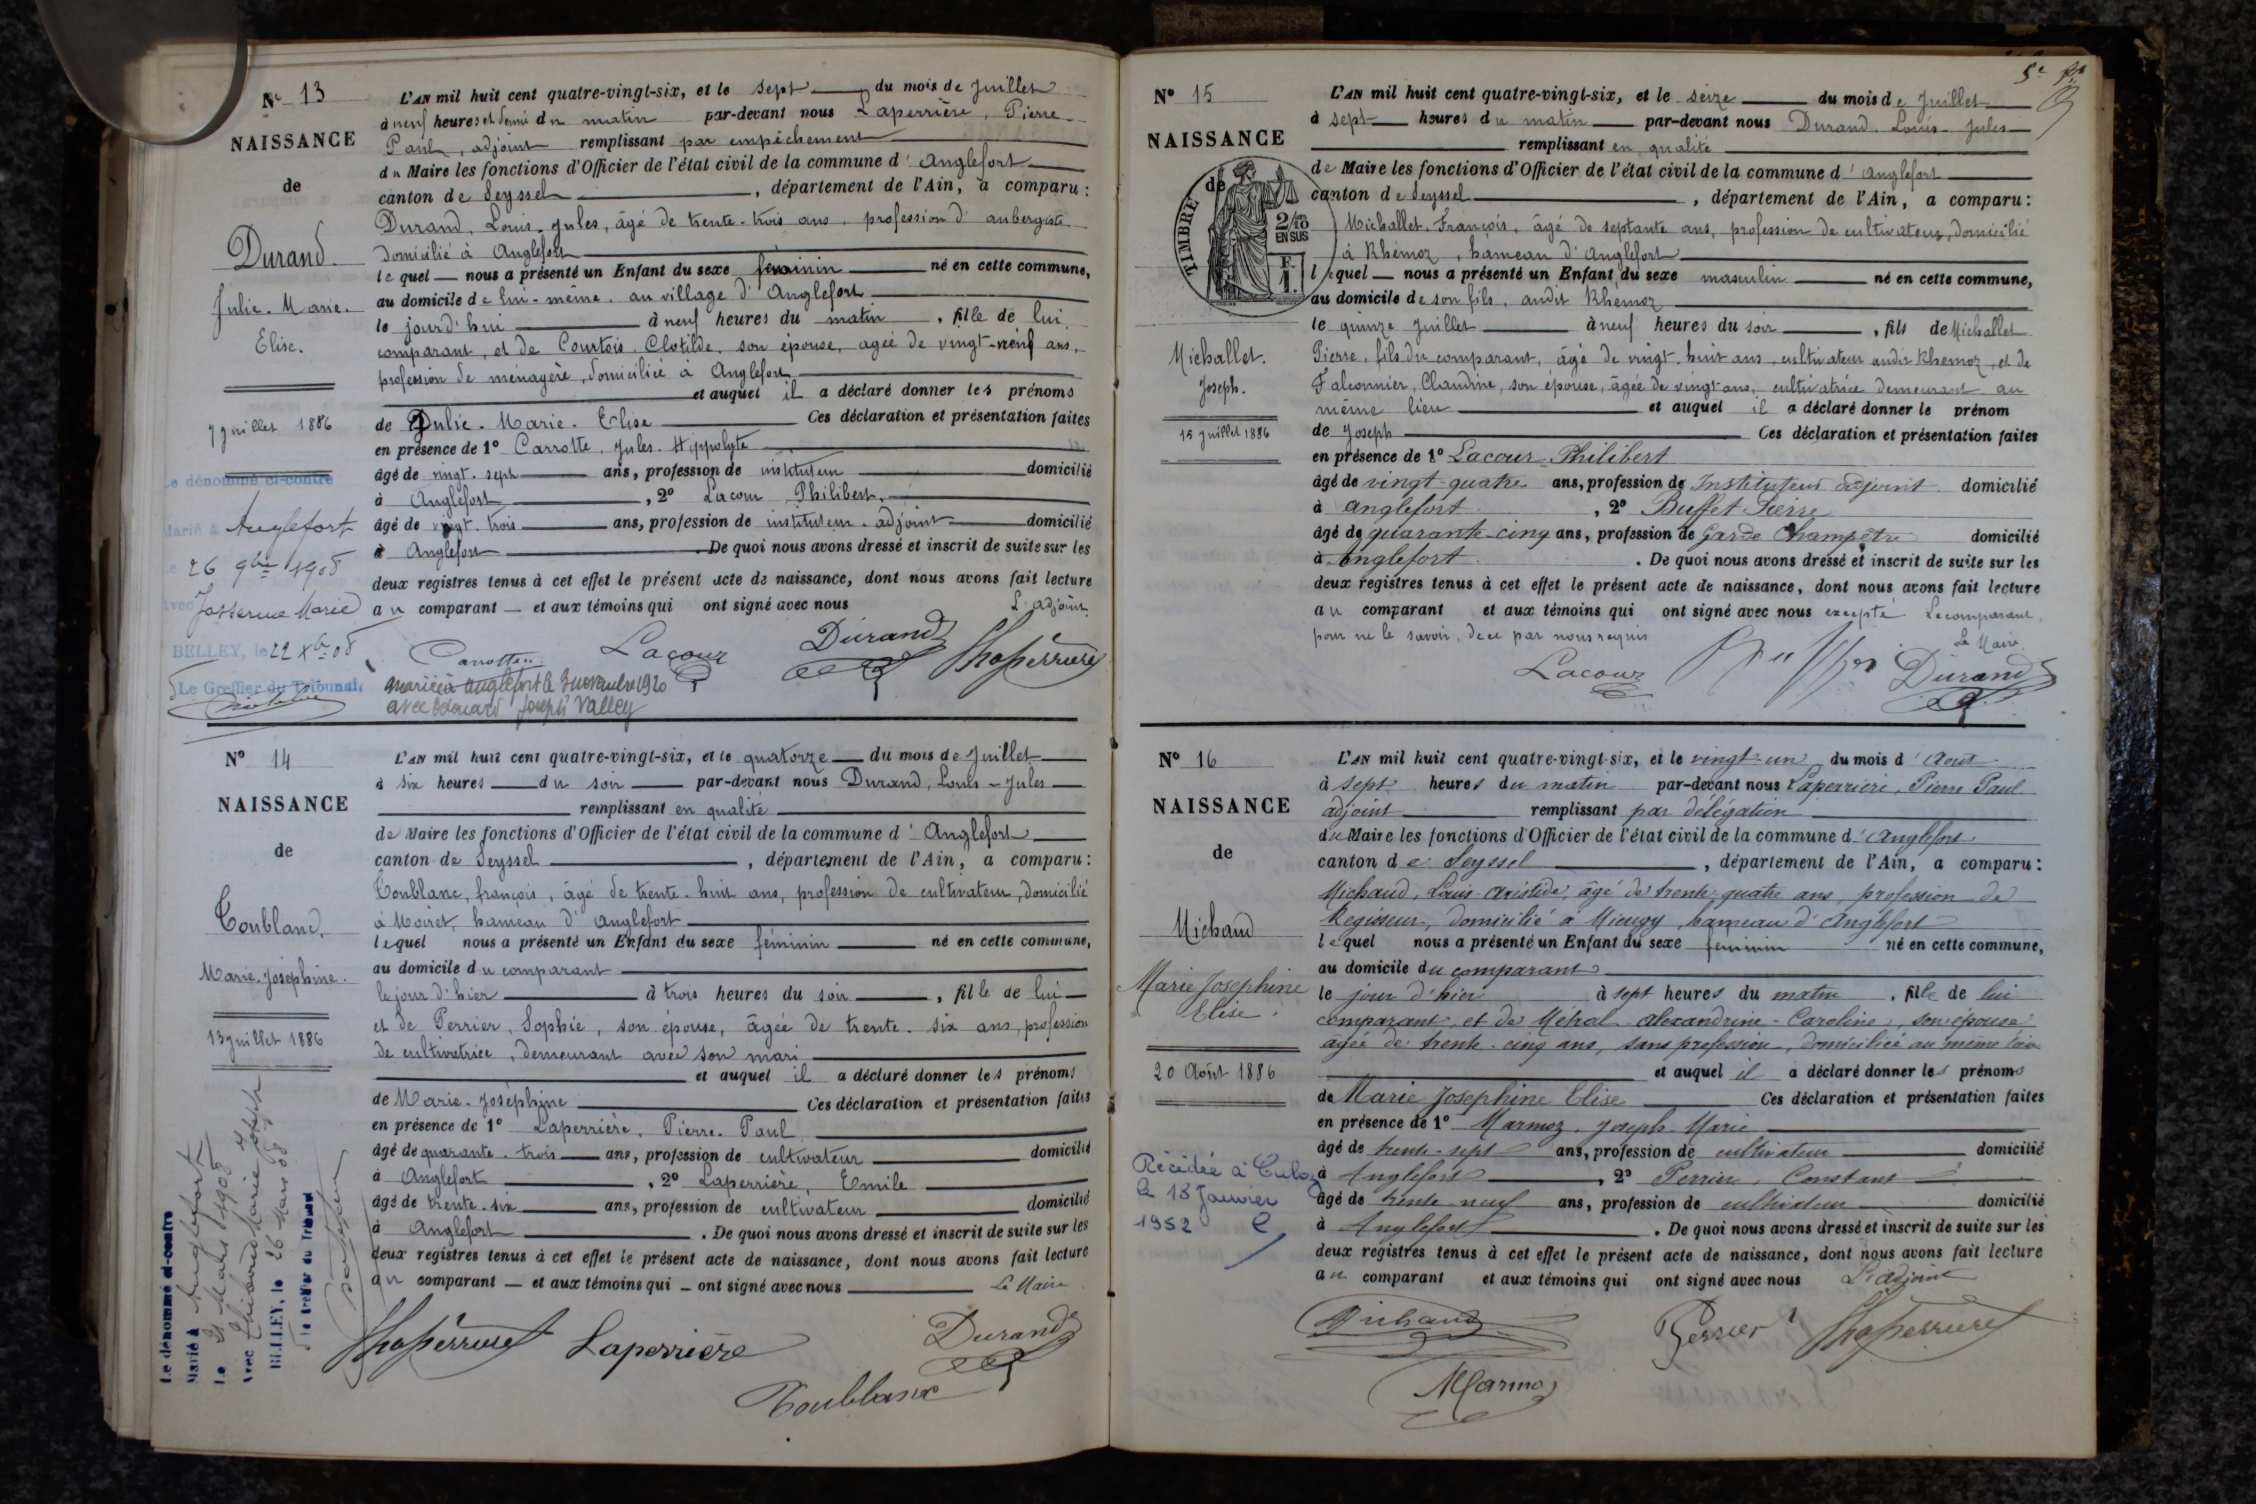 N° 13
NAISSANCE
de
Durand.
Julie. Marie.
Elise.
7 Juillet 1886
Le dénommé ci-contre
Marié à Anglefort
le 26 9bre 1908
avec Marie
BELLEY, le 22 Xbre 08
Le Greffier du Tribunal,
L'AN mil huit cent quatre-vingt-six, et le sept du mois de Juillet
à neuf heures et demi du matin par-devant nous Laperrière, Pierre
Paul, adjoint remplissant par empêchement
du Maire les fonctions d'Officier de l'état civil de la commune d'Anglefort
canton de Seyssel, département de l'Ain, a comparu:
Durand, Louis-Jules, âgé de trente-trois ans, profession d'aubergiste
domicilié à Anglefort
lequel nous a présenté un Enfant du sexe féminin né en cette commune,
au domicile de lui-même, au village d'Anglefort
le jourd'hui à neuf heures du matin, fille de lui
comparant, et de Courtois Clotilde, son épouse, agée de vingt-neuf ans,
profession de ménagère, domiciliée à Anglefort
et auquel il a déclaré donner les prénoms
de Julie. Marie. Elise Ces déclaration et présentation faites
en présence de 1° Carrotte, Jules. Hippolyte
âgé de vingt-sept ans, profession de instituteur domicilié
à Anglefort, 2° Lacour Philibert,
âgé de vingt-trois ans, profession de instituteur-adjoint domicilié
à Anglefort. De quoi nous avons dressé et inscrit de suite sur les
deux registres tenus à cet effet le présent acte de naissance, dont nous avons fait lecture
au comparant et aux témoins qui ont signé avec nous
L'adjoint
Carotte Lacour Durand Laperrière
mariée à anglefort le 3 novembre 1920
avec Edouard Joseph Valley
N° 14
NAISSANCE
de
Toubland.
Marie. Joséphine.
13 juillet 1886
Le dénommé ci-contre
Marié à Anglefort
Le 21 Mars 1908
avec Marie Joseph
BELLEY, le 26 Mars 08
Le Greffier du Tribunal
L'AN mil huit cent quatre-vingt-six, et le quatorze du mois de Juillet
à six heures du soir par-devant nous Durand, Louis-Jules
remplissant en qualité
de Maire les fonctions d'Officier de l'état civil de la commune d'Anglefort
canton de Seyssel, département de l'Ain, a comparu:
Toublanc, françois, âgé de trente-huit ans, profession de cultivateur, domicilié
à Moiret, hameau d'anglefort
lequel nous a présenté un Enfant du sexe féminin né en cette commune,
au domicile du comparant
le jour d'hier à trois heures du soir, fille de lui
et de Perrier, Sophie, son épouse, âgée de trente-six ans, profession
de cultivatrice, demeurant avec son mari
et auquel il a déclaré donner les prénoms
de Marie. Joséphine Ces déclaration et présentation faites
en présence de 1° Laperrière. Pierre. Paul
âgé de quarante-trois ans, profession de cultivateur domicilié
à Anglefort, 2° Laperrière, Emile
âgé de trente-six ans, profession de cultivateur domicilié
à Anglefort. De quoi nous avons dressé et inscrit de suite sur les
deux registres tenus à cet effet le présent acte de naissance, dont nous avons fait lecture
au comparant et aux témoins qui ont signé avec nous Le Maire
Laperrière Laperrière Durand
Toublanc
5e
N° 15
NAISSANCE
de
TIMBRE
2/10
EN SUS
F.
1.
Michallet.
Joseph.
15 Juillet 1886
L'AN mil huit cent quatre-vingt-six, et le seize du mois de Juillet
à sept heures du matin par-devant nous Durand, Louis-Jules
remplissant en qualité
de Maire les fonctions d'Officier de l'état civil de la commune d'Anglefort
canton de Seyssel, département de l'Ain, a comparu:
Michallet. François, âgé de septante ans, profession de cultivateur, domicilié
à Rhémoz, hameau d'Anglefort
lequel nous a présenté un Enfant du sexe masculin né en cette commune,
au domicile de son fils, audit Rhémoz
le quinze Juillet à neuf heures du soir, fils de Michallet
Pierre, fils du comparant, âgé de vingt-huit ans, cultivateur audit Rhemoz, et de
Falconnier, Claudine, son épouse, âgée de vingt ans, cultivatrice demeurant au
même lieu et auquel il a déclaré donner le prénom
de Joseph Ces déclaration et présentation faites
en présence de 1° Lacour Philibert
âgé de vingt quatre ans, profession de Instituteur adjoint domicilié
à anglefort, 2° Buffet Pierre
âgé de quarante-cinq ans, profession de Garde Champêtre domicilié
à Anglefort. De quoi nous avons dressé et inscrit de suite sur les
deux registres tenus à cet effet le présent acte de naissance, dont nous avons fait lecture
au comparant et aux témoins qui ont signé avec nous excepté Le comparant,
pour ne le savoir, de ce par nous requis
Le Maire
Lacour Buffet Durand
N° 16
NAISSANCE
de
Michaud
Marie Josephine
Elise.
20 Août 1886
Décédée à Culoz
le 18 Janvier
1952
L'AN mil huit cent quatre-vingt-six, et le vingt-un du mois d'Août
à sept heures du matin par-devant nous Laperrière, Pierre Paul
adjoint remplissant par délégation
du Maire les fonctions d'Officier de l'état civil de la commune d'Anglefort
canton de Seyssel, département de l'Ain, a comparu:
Michaud, Louis-Aristide, âgé de trente-quatre ans, profession de
Régisseur, domicilié à Mieugy, hameau d'Anglefort
lequel nous a présenté un Enfant du sexe féminin né en cette commune,
au domicile du comparant
le jour d'hier à sept heures du matin, fille de lui
comparant, et de Métral Alexandrine-Caroline, son épouse
agée de trente-cinq ans, sans profession, domiciliée au même lieu
et auquel il a déclaré donner les prénoms
de Marie Josephine Elise Ces déclaration et présentation faites
en présence de 1° Marmoz. Joseph Marie
âgé de trente-sept ans, profession de cultivateur domicilié
à Anglefort, 2° Perrier, Constant
âgé de trente-neuf ans, profession de cultivateur domicilié
à Anglefort. De quoi nous avons dressé et inscrit de suite sur les
deux registres tenus à cet effet le présent acte de naissance, dont nous avons fait lecture
au comparant et aux témoins qui ont signé avec nous L'adjoint
Michaud Perrier Laperrière
Marmoz